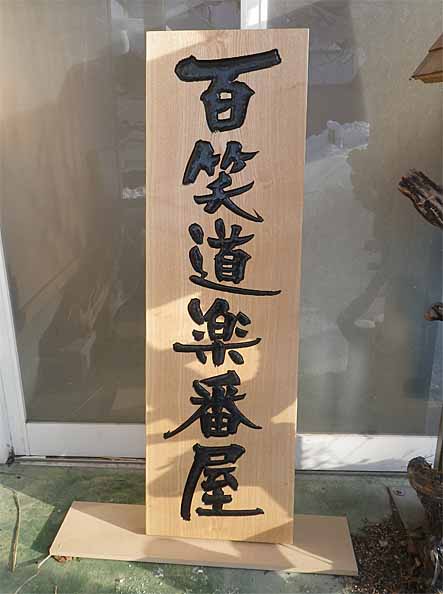 百笑道楽番屋